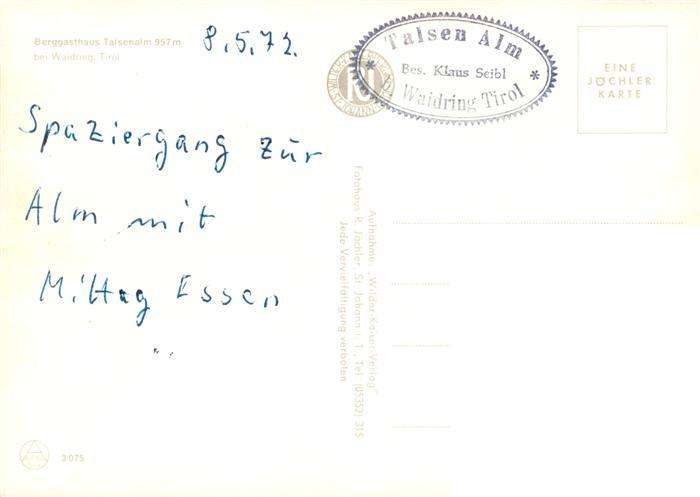 Berggasthaus Talsenalm 957 m
bei Waidring, Tirol
8.5.72.
Talsen Alm
* Bes. Klaus Seibl *
bei Waidring Tirol
EINE
JÖCHLER
KARTE
Spaziergang zur
Alm mit
Mittag Essen
Aufnahme: „Wilder-Kaiser-Verlag"
Fotohaus R. Jöchler, St. Johann i. T., Tel. (05352) 315
Jede Vervielfältigung verboten
3075